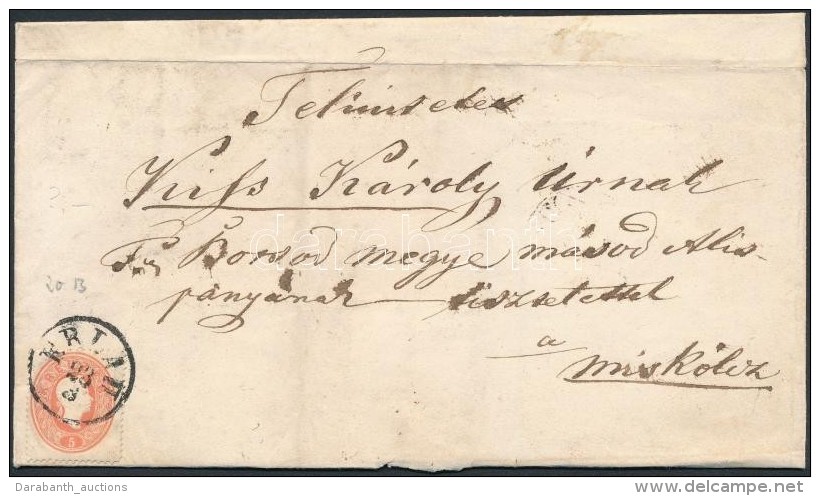 Tekintetes
Kiss Károly Úrnak
Borsod megye másod Alis-
pányának tisztelettel
a
Miskólcz
20 B
5
darabanth
Darabanth_auctions
www.delcampe.net